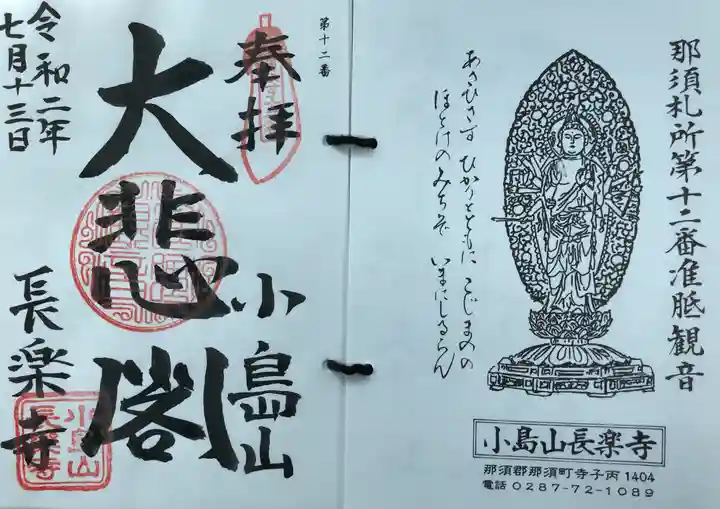 那須札所第十二番准胝観音
あさひさす ひかりとともに こじまのの
ほとけのみちぞ いまにしるらん
小島山長楽寺
那須郡那須町寺子丙1404
電話 0287-72-1089
第十二番
奉拝
小島山
大悲閣
長楽寺
令和二年
七月十三日
小島山
長楽寺